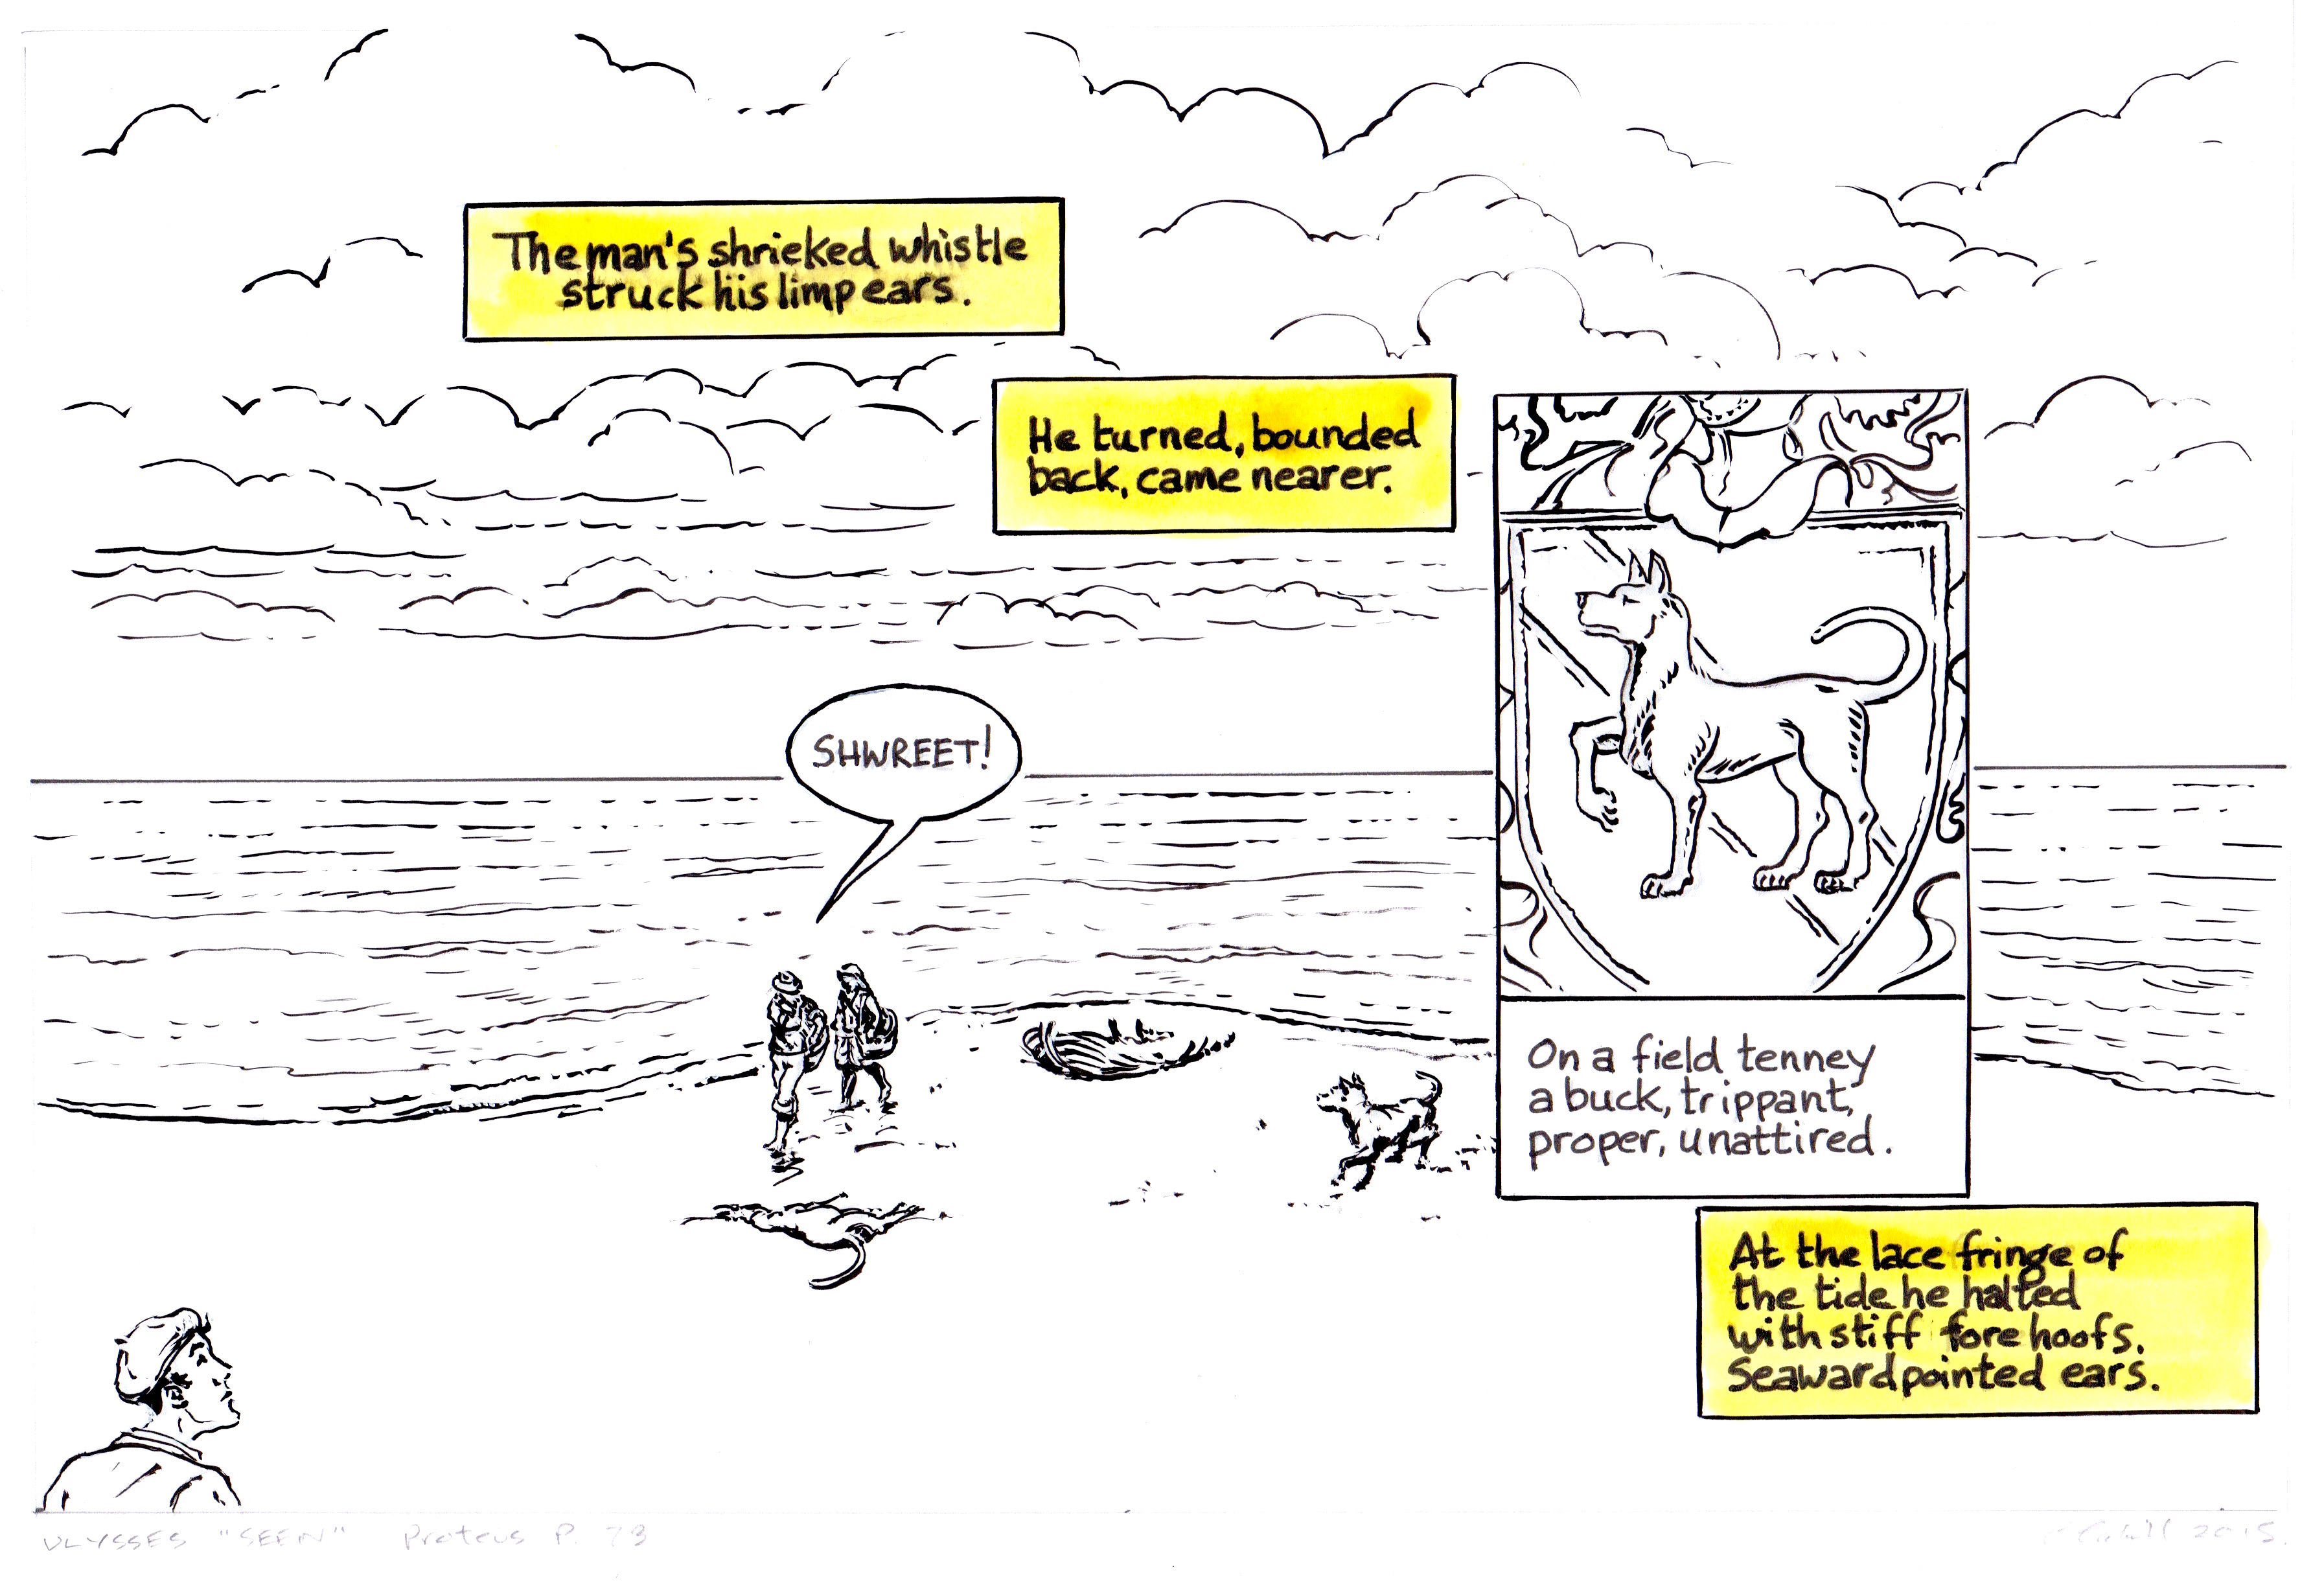 The man's shrieked whistle
struck his limp ears.
He turned, bounded
back, came nearer.
SHWREET!
On a field tenney
a buck, trippant,
proper, unattired.
At the lace fringe of
the tide he halted
with stiff forehoofs,
seawardpointed ears.
ULYSSES "SEEN" Proteus P. 73
2015